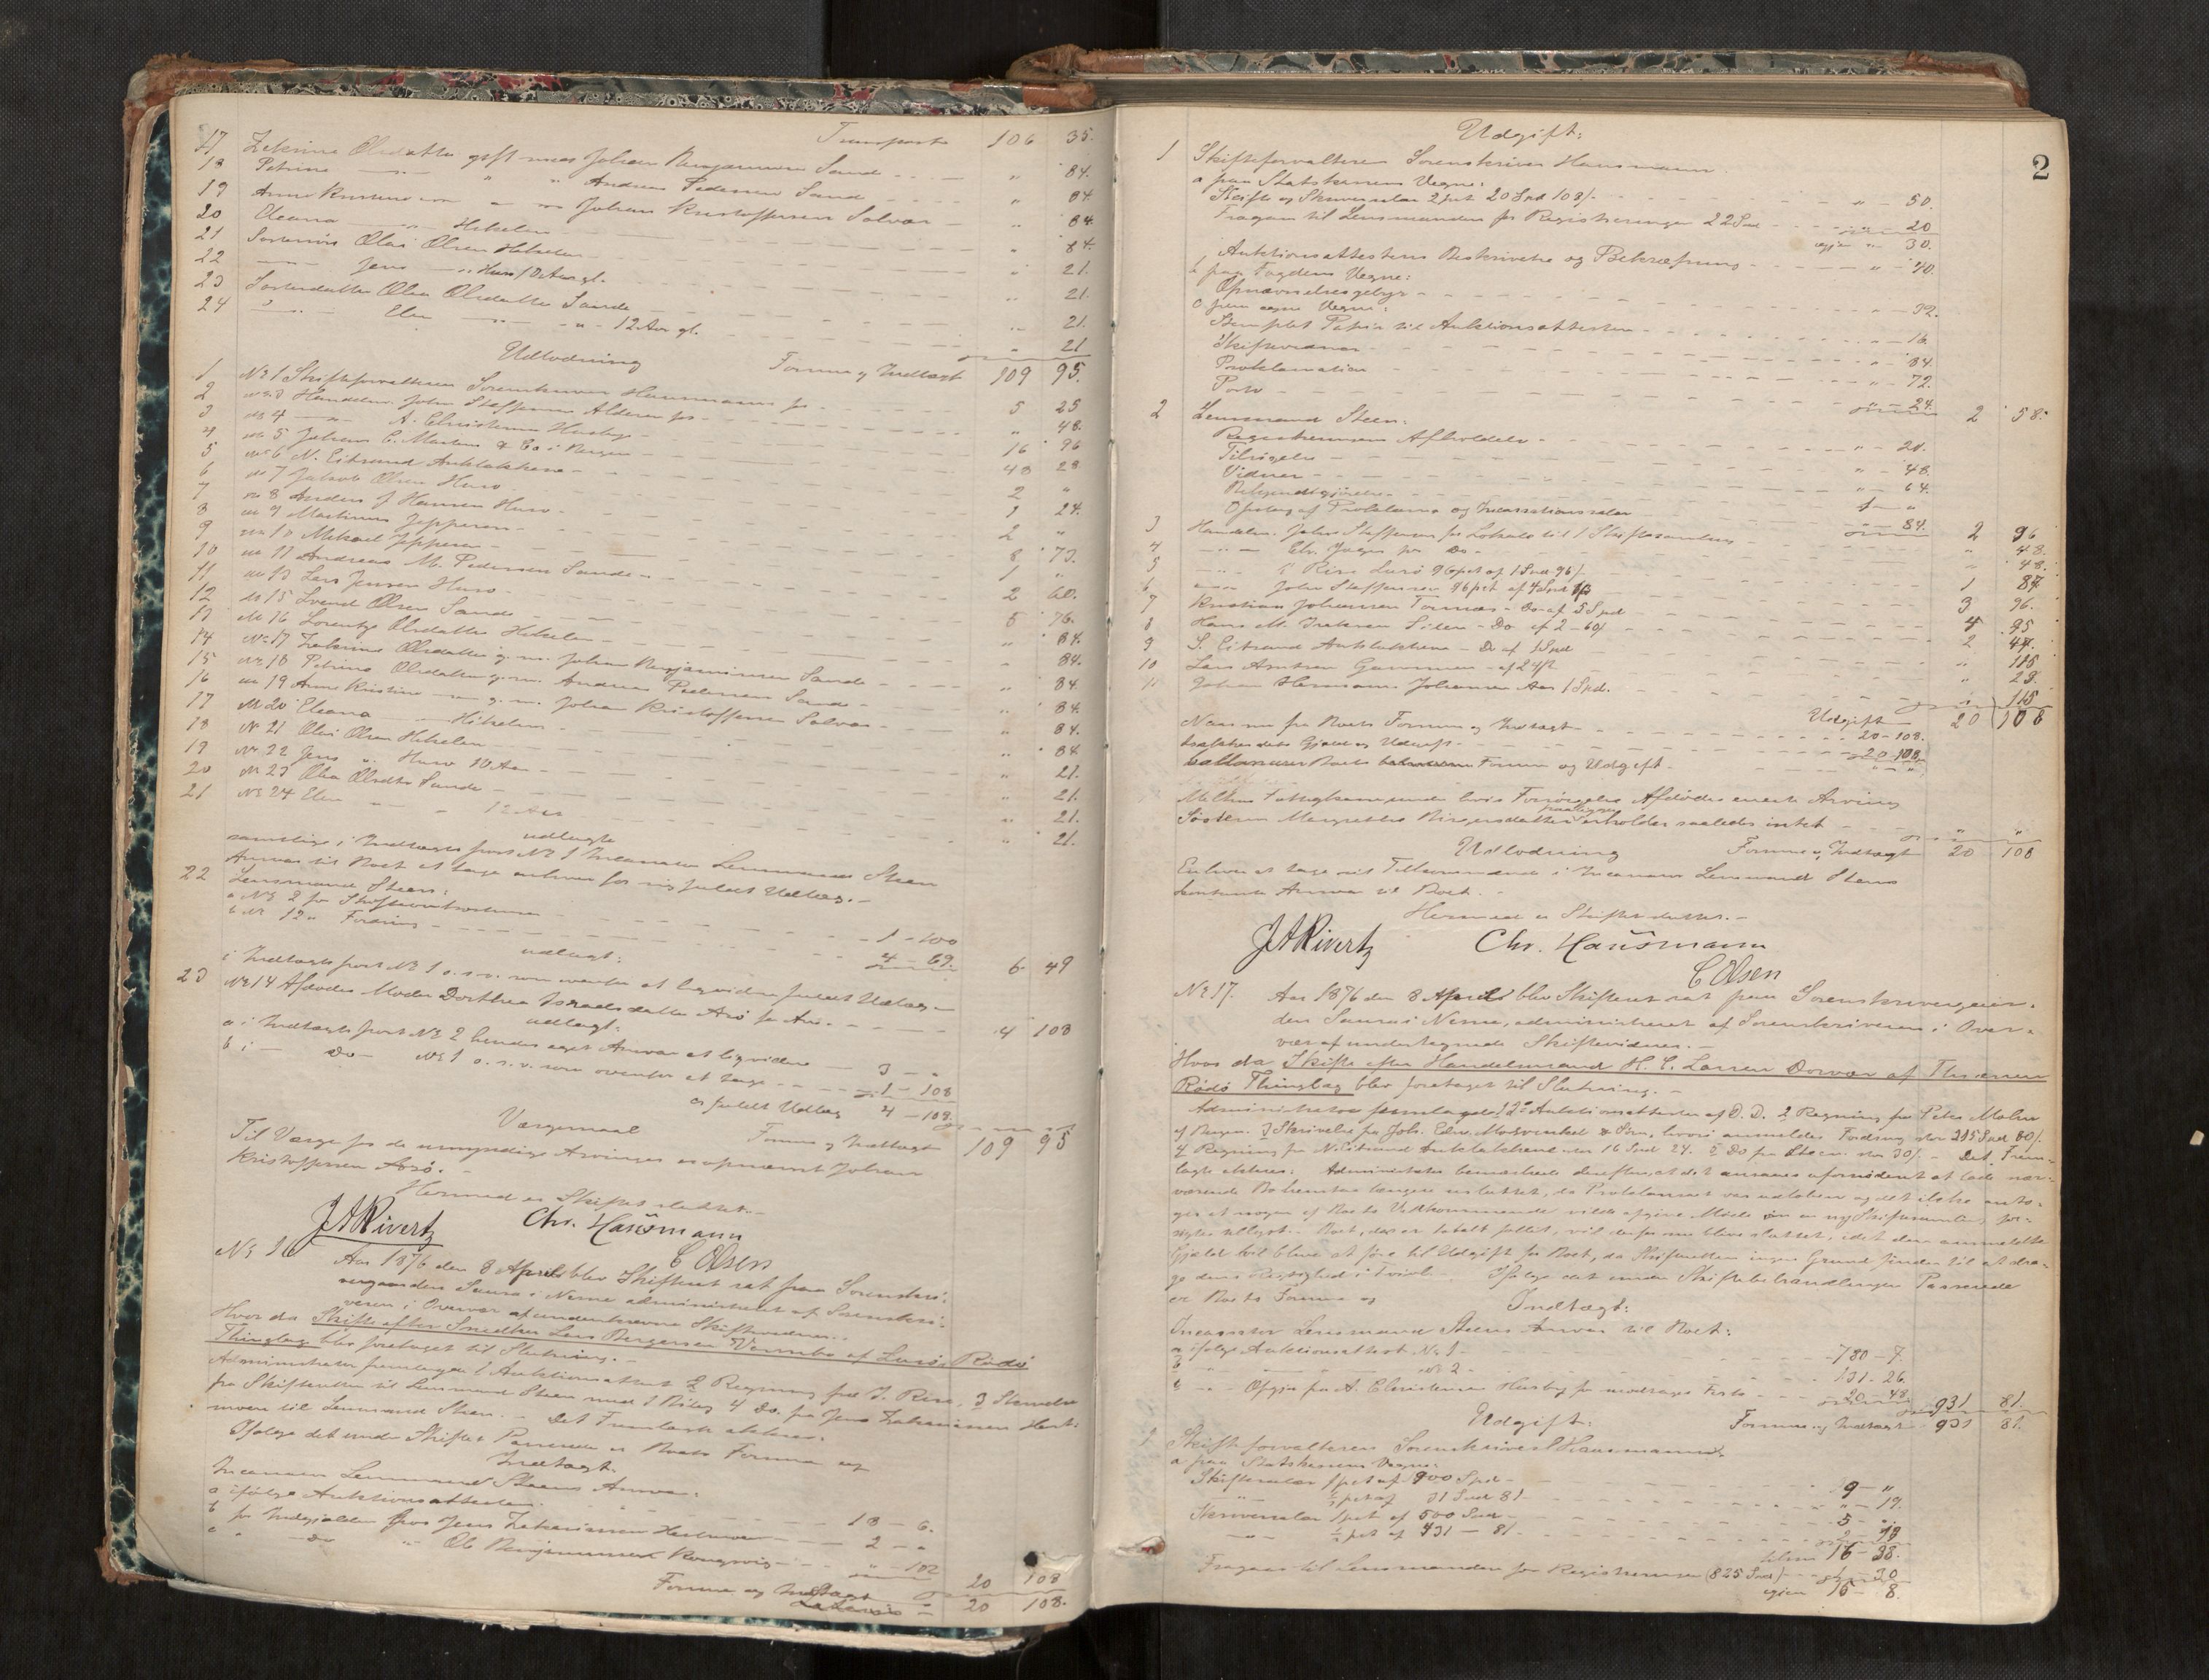 Transport 106 35.
17 Zekrine Olsdatter gift med Johan Benjaminsen Sand " 84.
18 Petrine " " Andreas Pedersen Sand " 84.
19 Anne Kristine " Johan Kristoffersen Solvær " 84.
20 Eleana Hikelen " 84.
21 Olai Olsen Hikelen " 21.
22 Jens Huso 10 Aar gl. " 21.
23 Søsterdatter Olea Olsdatter Sande " 21.
24 Elen 12 Aar gl. " 21
Udlodning Formue og Indtægt 109 95.
1 No 1 Skifteforvalteren Sorenskriver Hausmann for 5 25
2 No 3 Handelsm. John Steffensen Alderen for " 48.
3 No 4 A. Christensen Husby 16 96
4 No 5 Johan C. Martens & Co i Bergen 48 28
5 No 6 N. Eitrand Anklakken 2 "
6 No 7 Jakob Olsen Huso 1 24.
7 No 8 Anders J Hansen Huso 2 "
8 No 9 Martinus Jeppesen 8 73.
9 No 10 Mikael Jeppesen 1 "
10 No 11 Andreas M. Pedersen Sande 2 60.
11 No 13 Lars Jensen Huso 5 76.
12 No 15 Svend Olsen Sande " 84.
13 No 16 Lorentze Olsdatter Hikelen " 84.
14 No 17 Zekrine Olsdatter g. m. Johan Benjaminsen Sande " 84.
15 No 18 Petrine Olsdatter g. m. Andreas Pedersen Sand " 84.
16 No 19 Anne Kristine g. m. Johan Kristoffersen Solvær " 84.
17 No 20 Eleana Hikelen " 84
18 No 21 Olai Olsen Hikelen " 21.
19 No 22 Jens " Huso 10 Aar " 21.
20 No 23 Olea Olsdtr Sande " 21.
21 No 24 Elen " 12 Aar " 21.
udlagt
samtlige i Indtægts post No 1 Incassator Lensmand Steen
Ansvar til Boet at tage enhver for sig fuldt Udlæg.
22 Lensmand Steen:
a No 2 for Skifteomkostninger 1 - 100
b No 12 " Fordring 4 - 69.
udlagt: 6 49
i Indtægts post No 1 o. s. v. som ovenfor at liqvidere fuldt Udlæg
23 No 14 Afdødes Moder Dorthea Israelsdatter Asø for Arv 4 108
udlagt:
a i Indtægts post No 2 hendes eget Ansvar at liqvidere 3 - "
b i Do No 1 o. s. v. som ovenfor at tage 1 - 108
er fuldt Udlæg 4 - 108.
Værgemaal Formue og Indtægt 109 95
Til Værge for de umyndige Arvinger er opnævnt Johan
Kristoffersen Asø.
Hermed er Skiftet sluttet.
J A Rivertz Chr. Hausmann
C Olsen
No 16 Aar 1876 den 8 April blev Skifteret sat paa Sorenskri-
vergaarden Saura i Nesne administreret af Sorenskri-
veren i Overvær af undertegnede Skiftevidner.
Hvor da Skifte efter Snedker Lars Bergersen Vambo af Lurø, Rødø
Thinglag blev foretaget til Slutning.
Administrator fremlagde 1 Auktionsattest 2 Regning fra J. Rise, 3 Skrivelse
fra Skifteretten til Lensmand Steen med 1 Bilag 4 Do. fra Jens Zakariassen
til Lensmand Steen. Det Fremlagte akteres.
Ifølge det under Skiftet Passerede er Boets Formue og
Indtægt.
Incassator Lensmand Steens Ansvar:
a ifølge Auktionsattesten 18 - 6.
b for Indgjælden hos Jens Zakariassen 2 - "
c " Do " Ole Benjaminsen " - 102
20 108
Formue og Indtægt 20 108.

2
Udgift:
1 Skifteforvalteren Sorenskriver Hausmann
a paa Statskassens Vegne:
Skifte og Skriversalær 2 pct 20 Spd 108 /- " - 50.
Fragaar til Lensmanden for Registreringen 22 Spd 20
igjen " 30.
Auktionsattestens Beskrivelse og Bekræftning " - 40.
b paa Fogdens Vegne:
Opnævnelsesgebyr " - 32.
c paa egne Vegne:
Stemplet Papir til Auktionsattesten " - 16.
Skiftevidner " - 84.
Proklamation " - 72.
Porto 24. 2 58.
2 Lensmand Steen:
Registreringens Afholdelse " - 20.
Tilsigelse " - 48.
Vidner " - 64.
Bekjendtgjørelse 1 - "
Opslag af Proklama og Incassationssalær 84. 2 96
3 Handelsm. John Steffensen for Lokale til 1 Skiftesamling " 48.
4 Chr. Jæger for Do " 48.
5 J Rise Lurø 96 pct af 1 Spd 96 /- 1 87
6 John Steffensen 96 pct af 4 Spd 3 96.
7 Kristian Johansen Tonnes - Do af 5 Spd 4 95
8 Hans M. Do af 2 - 60 / 2 47.
9 S. Eitrand Anklakken - Do af 1 Spd " 115
10 Lars Arntsen " 23.
11 Johan Herman Johansen Aas 1 Spd. " 115
Udgift 20 108
Naar nu fra Boets Formue og Indtægt 20 - 108.
trækkes dets Gjæld og Udgift 20 108.
ballancerer Boets Formue og Udgift " "
Fattigkasse under hvis Forsørgelse Afdødes eneste Arving
Søsteren Margrethe Birgersdatter erholder saaledes intet " "
Udlodning Formue og Indtægt 20 108
Enhver at tage sit Tilkommende i Incassator Lensmand Steens
Ansvar til Boet.
Hermed er Skiftet sluttet.
J A Rivertz Chr. Hausmann
C Olsen
No 17. Aar 1876 den 8 April blev Skifteret sat paa Sorenskrivergaar-
den Saura i Nesne, administreret af Sorenskriveren i Over-
vær af undertegnede Skiftevidner.
Hvor da Skifte efter Handelsmand H. C. Larsen Dorvær af Thrænen
Rødø Thinglag blev foretaget til Slutning.
Administrator fremlagde 1 2de Auktionsattester af D. D. 2 Regning fra Peter Mohn
af Bergen. 3 Skrivelse fra Joh. Edw. Mowinckel & Søn, hvori anmeldes Fordring stor 215 Spd 80 /.
4 Regning fra N. Eitrand Anklakken stor 16 Spd 24. 5 Do fra Steen stor 30 /. - Det Frem-
lagte akteres. Administrator bemærkede derefter, at det ansaaes ufornødent at lade nær-
værende Bo henstaa længere usluttet, da Proklamaet var udløben og det ikke anto-
ges at nogen af Boets Vedkommende vilde afgive Møde om en ny Skiftesamling for-
Boet, der er totalt fallit, vil derfor nu blive sluttet, idet den anmeldte
Gjæld vil blive at føre til Udgift for Boet, da Skifteretten ingen Grund finder til at dra-
ge dens Rigtighed i Tvivl. Ifølge det under Skiftebehandlingen Passerede
er Boets Formue og Indtægt:
Incassator Lensmand Steens Ansvar til Boet:
a ifølge Auktionsattest No 1 780 - 7.
b " " No 2 131 - 26.
c " Opgjør fra A. Christensen Husby for modtagne 20 - 48. 931 81.
Udgift: Formue og Indtægt 931 81.
1 Skifteforvalteren Sorenskriver Hausmann
a paa Statskassens Vegne:
Skiftesalær 1 pct af 900 Spd 9 - "
" ½ pct af 31 Spd 81 " - 19.
Skriversalær 1 pct af 500 Spd 5 - "
" ½ pct af 431 - 81 2 - 19
tilsm 16 - 38.
Fragaar til Lensmanden for Registreringen (825 Spd) 1 - 30
igjen 15 - 8.